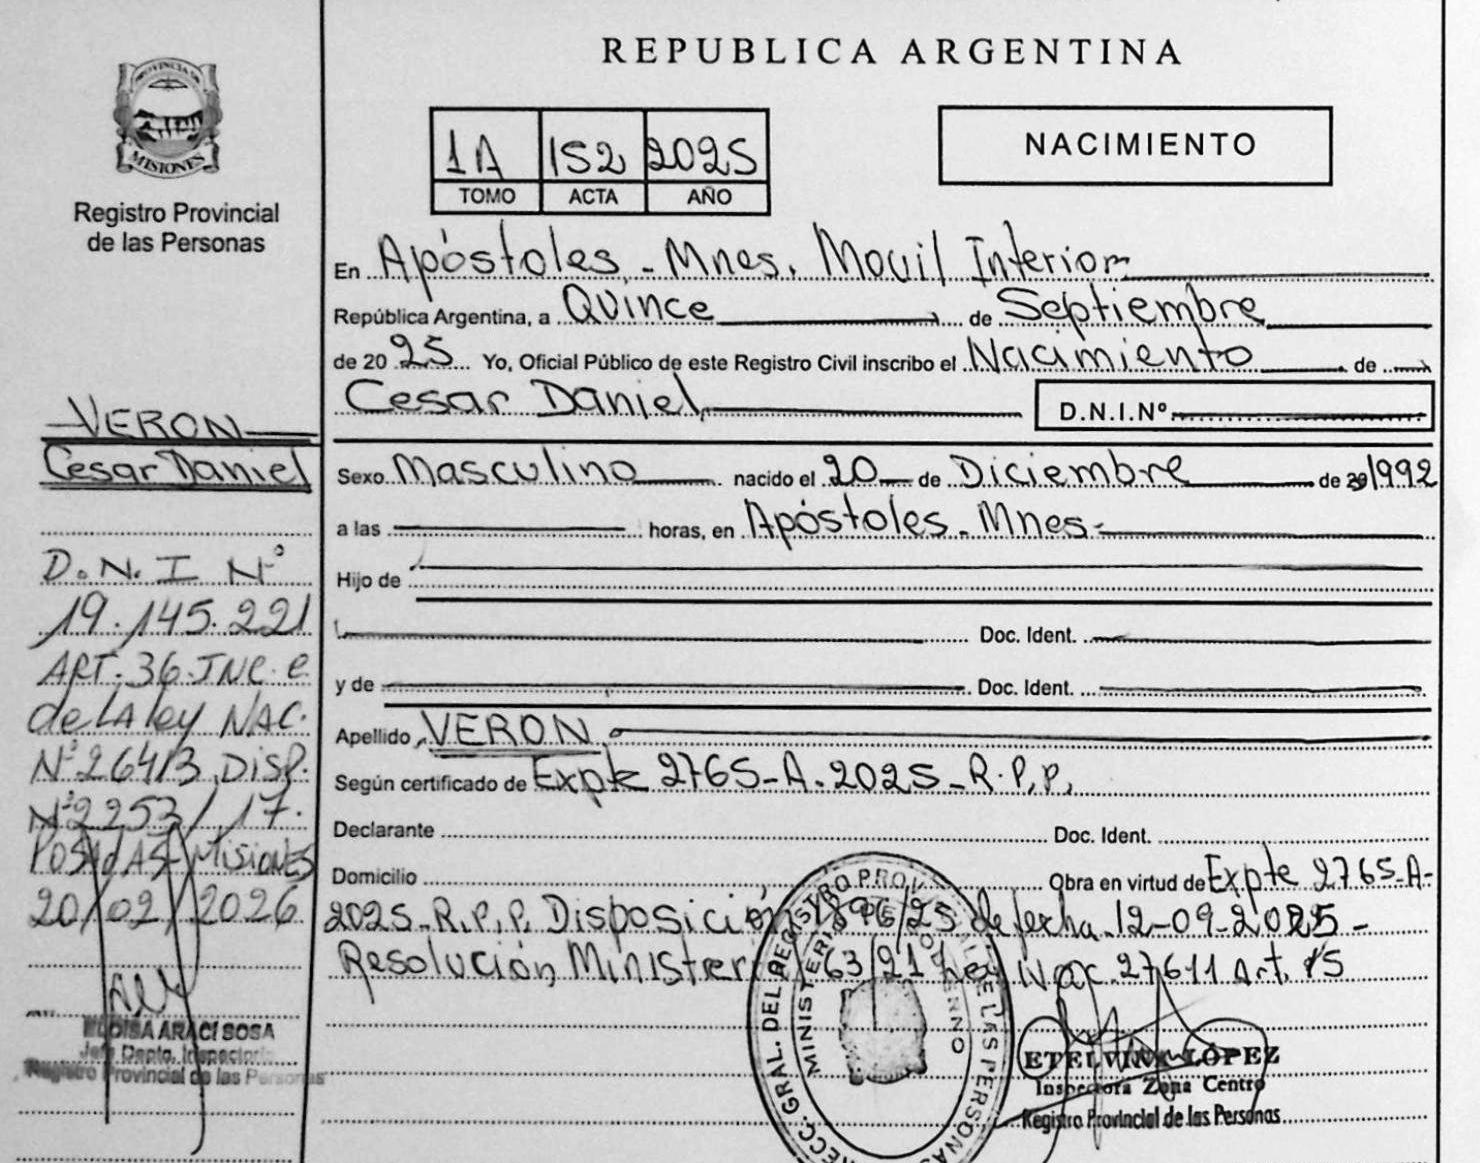 PROVINCIA DE
MISIONES
Registro Provincial
de las Personas
VERON
Cesar Daniel
D.N.I Nº
19.145.221
ART. 36 INC. e
de LA ley NAC.
Nº 26413 DISP.
Nº 2253/17.
POSADAS-MISIONES
20/02/2026
ELOISA ARACI SOSA
Jefe Dpto. Inspectoría
Registro Provincial de las Personas
REPUBLICA ARGENTINA
1A 152 2025
TOMO ACTA AÑO
NACIMIENTO
En Apóstoles - Mnes. Movil Interior
República Argentina, a Quince de Septiembre
de 20 25 Yo, Oficial Público de este Registro Civil inscribo el Nacimiento de
Cesar Daniel D.N.I.Nº
Sexo Masculino nacido el 20 de Diciembre de 1992
a las horas, en Apóstoles - Mnes-
Hijo de
Doc. Ident.
y de Doc. Ident.
Apellido VERON
Según certificado de Expte 2765-A-2025-R.P.P.
Declarante Doc. Ident.
Domicilio Obra en virtud de Expte 2765-A-
2025-R.P.P. Disposición 1896/25 de fecha 12-09-2025-
Resolución Ministerial 63/21 Ley Nac. 27611 Art. 15
ETELVINA LÓPEZ
Inspectora Zona Centro
Registro Provincial de las Personas